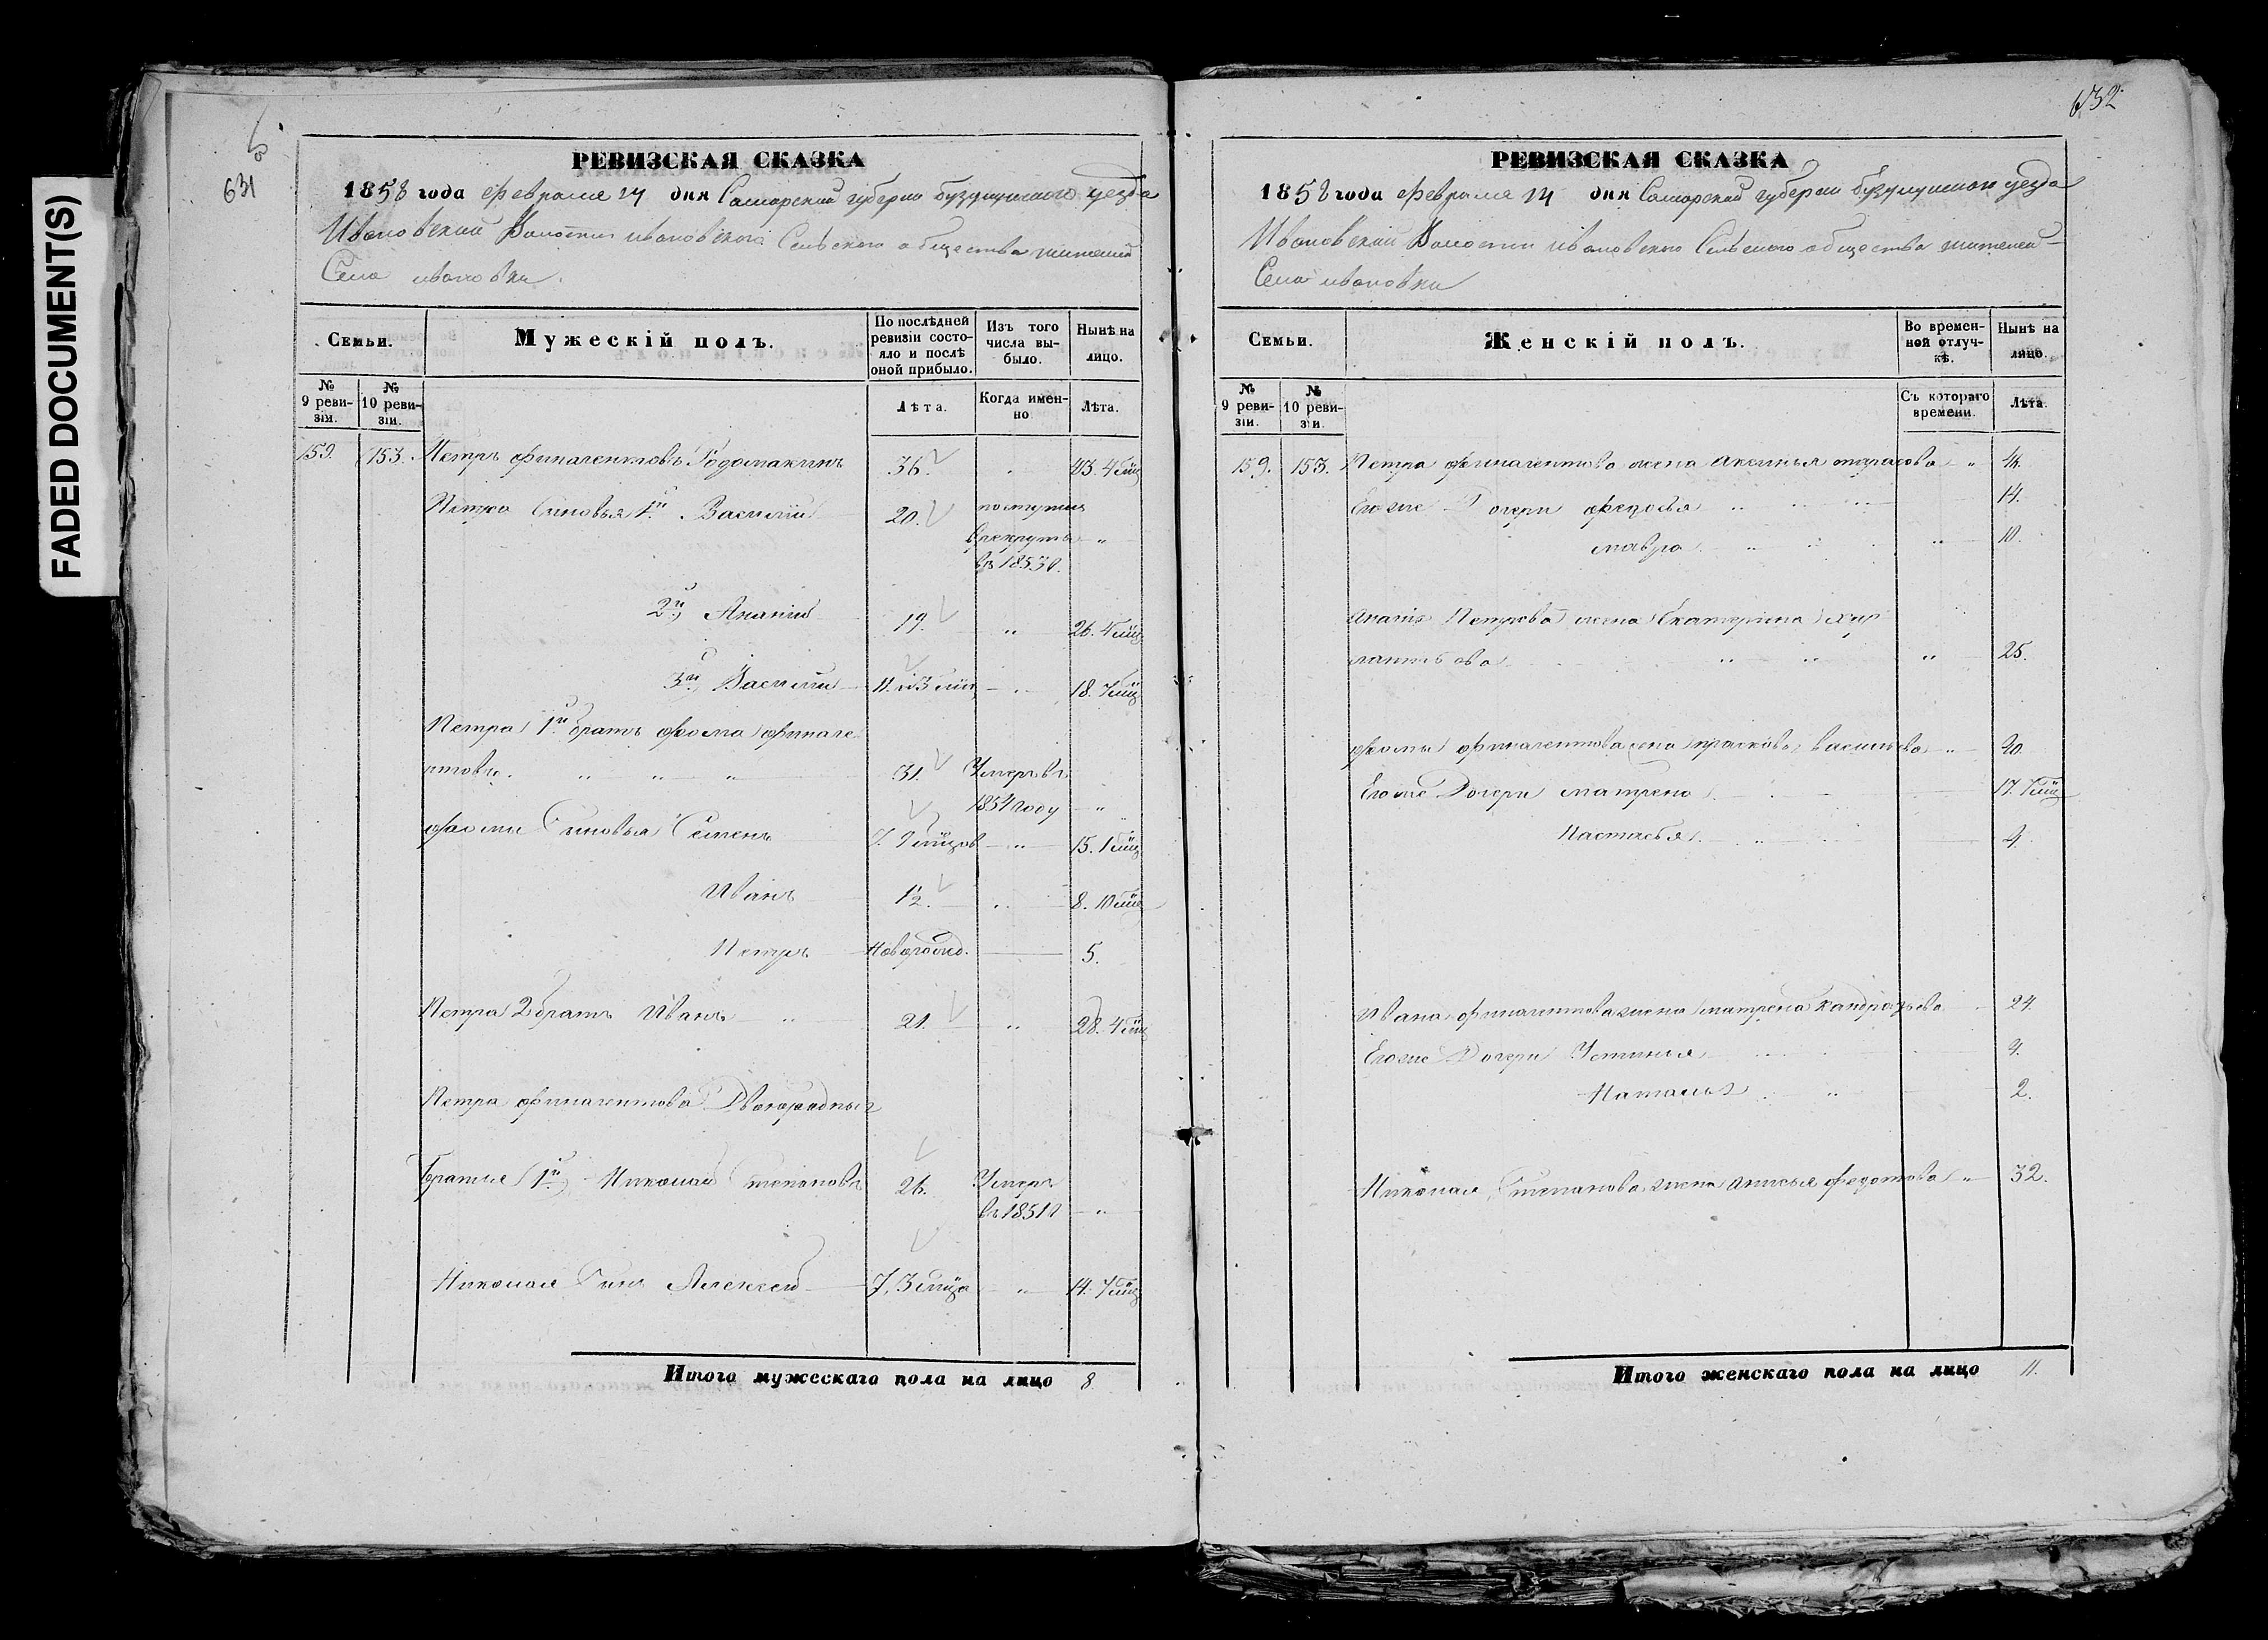 FADED DOCUMENT(S)
631
РЕВИЗСКАЯ СКАЗКА
1858 года февраля 14 дня Самарской губернии бузулукского уезда
Ивановской Волости ивановского Сельского общества жителей
Села ивановки.
Семьи.
Мужескій полъ.
По послѣдней ревизіи состояло и послѣ оной прибыло.
Изъ того числа выбыло.
Нынѣ на лицо.
№ 9 ревизіи.
№ 10 ревизіи.
Лѣта.
Когда именно
Лѣта.
159. 153. Петръ финагентовъ Родомакинъ 36. „ 43. 4 мѣц
Петра Сыновья 1й Василий 20. поступил
в рекруты „
въ 1853 г.
2й Ананий 19. „ 26. 4 мѣц
3й Василий 11. и 3 мѣц „ 18. 7 мѣц
Петра 1й братъ фома финаге
нтовъ. „ „ „ 31. Умеръ въ
1854 году „
фомы Сыновья Семенъ 7. 9 мѣцов „ 15. 1 мѣц
Иванъ 1½. „ 8. 10 мѣц
Петръ Новорожд. 5.
Петра 2 братъ Иванъ „ 21. „ 28. 4 мѣц
Петра финагентова Двоюродныя
братья 1й Николай Степановъ 26. Умеръ
въ 1851 г „
Николая Сынъ Алексей 7, 3 мѣца „ 14. 7 мѣц
Итого мужескаго пола на лицо 8.
632
РЕВИЗСКАЯ СКАЗКА
1858 года февраля 14 дня Самарской губернии бузулукского уезда
Ивановской Волости ивановского Сельского общества жителей
Села ивановки
Семьи.
Женскій полъ.
Во временной отлучкѣ.
Нынѣ на лицо.
№ 9 ревизіи.
№ 10 ревизіи.
Съ котораго времени.
Лѣта.
159. 153. Петра финагентова жена аксинья тарасова „
Егоже Дочери федосья „ 14.
мавра „ „ 10.
Анания Петрова жена Екатерина Хар
лантьева „ „ „ 25.
фомы финагентова жена прасковья васильева „ 40.
Егоже Дочери матрена 17. 7 мѣц
Настасья „
Ивана финагентова жена матрена кандратьева 24.
Егоже Дочери Устинья 4.
Наталья „ 2.
Николая Степанова жена анисья федотова „ 32.
Итого женскаго пола на лицо 11.